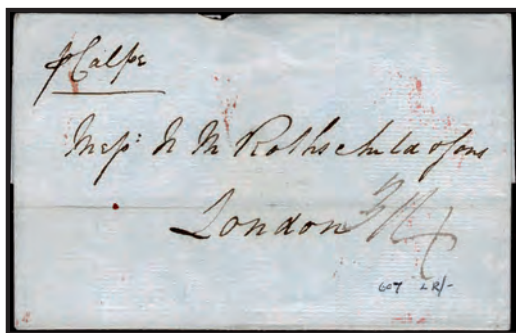 p Calpe
Messrs: N M Rothschild & Sons
London
607